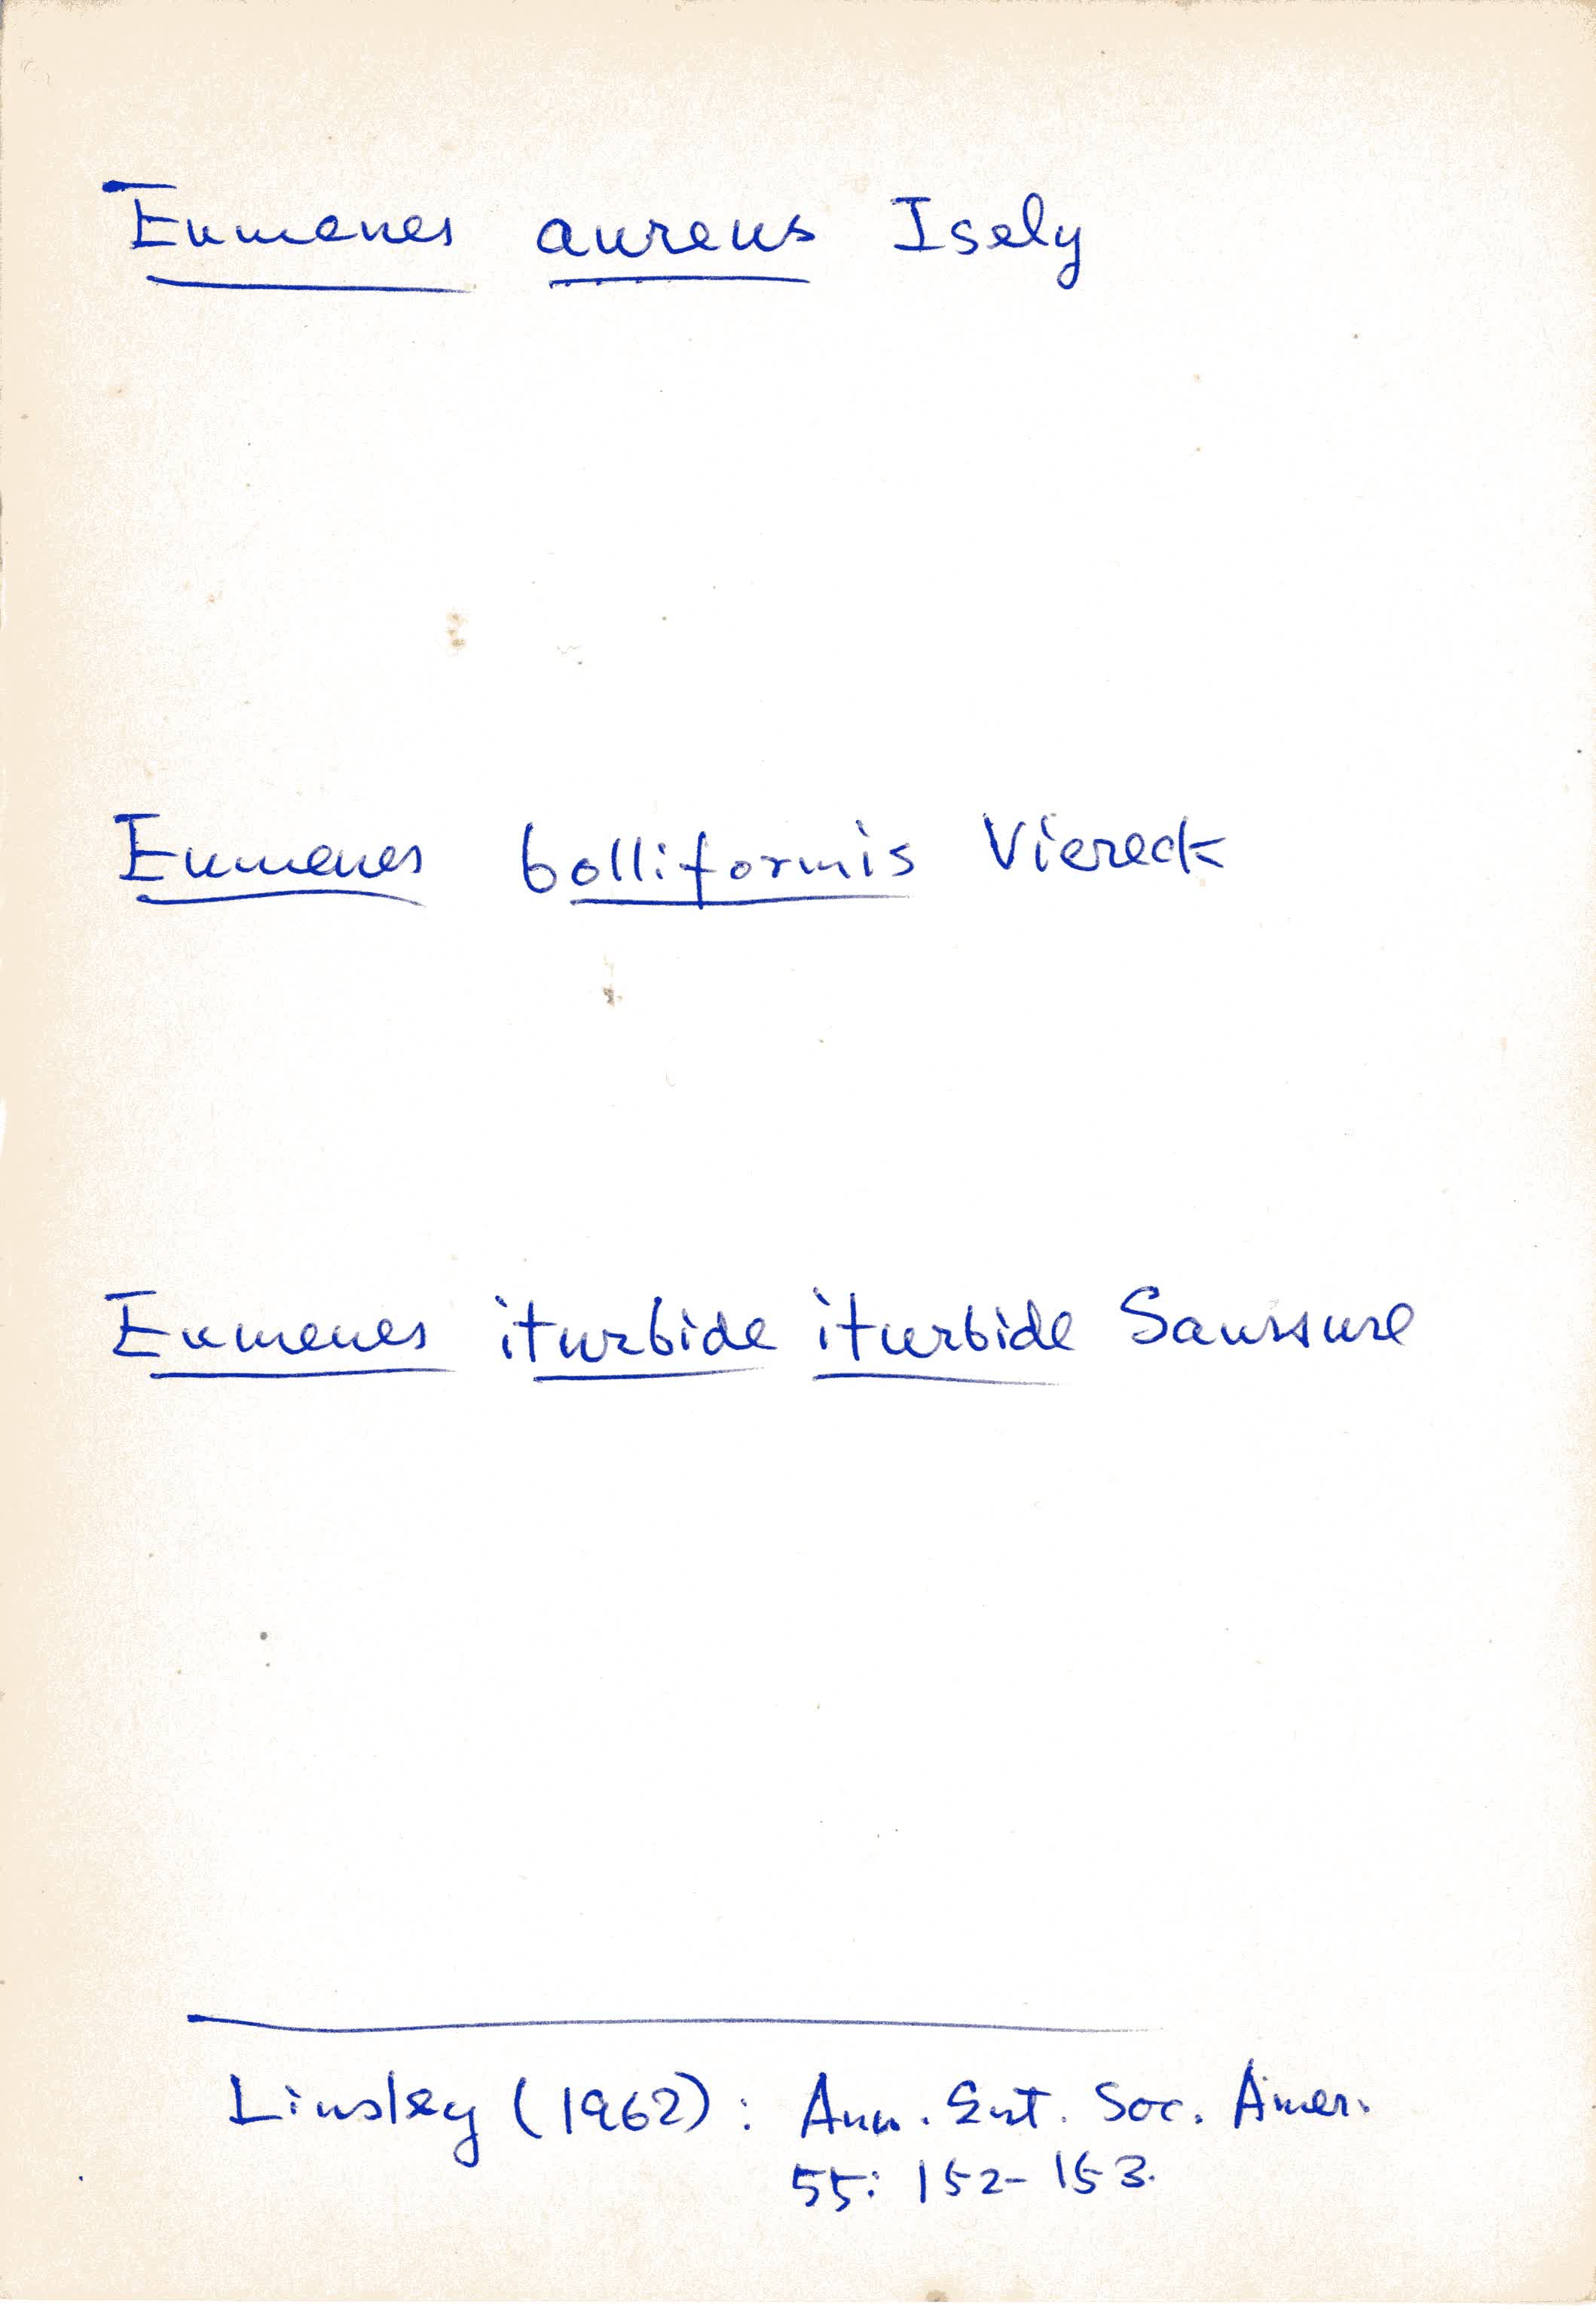 Eumenes aureus Isely
Eumenes bolliformis Viereck
Eumenes iturbide iturbide Saussure
Linsley (1962): Ann. Ent. Soc. Amer.
55: 152-153.